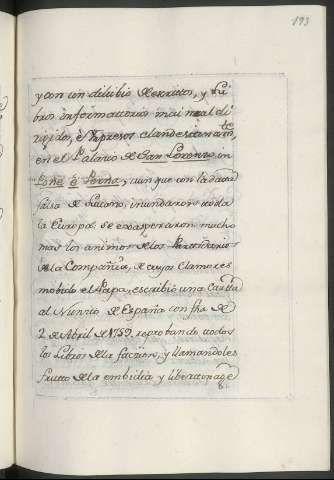 193
y con un dilubio de escritos, y Li
bros informatorios mui mal di
rigidos, è Ympresos clandestinam.te
en el Palacio de San Lorenzo in
y aunque con la data
falsa de Lugano, inundaron toda
la Europa, se exasperaron mucho
mas los animos de los Partidarios
de la Compañia, de cuyos clamores
mobido el Papa, escribiò una Carta
al Nuncio de España con fha de
2 de Abril de 1759 reprobando todos
los Libros de la façion, y llamandoles
frutto de la embidia y libertinage